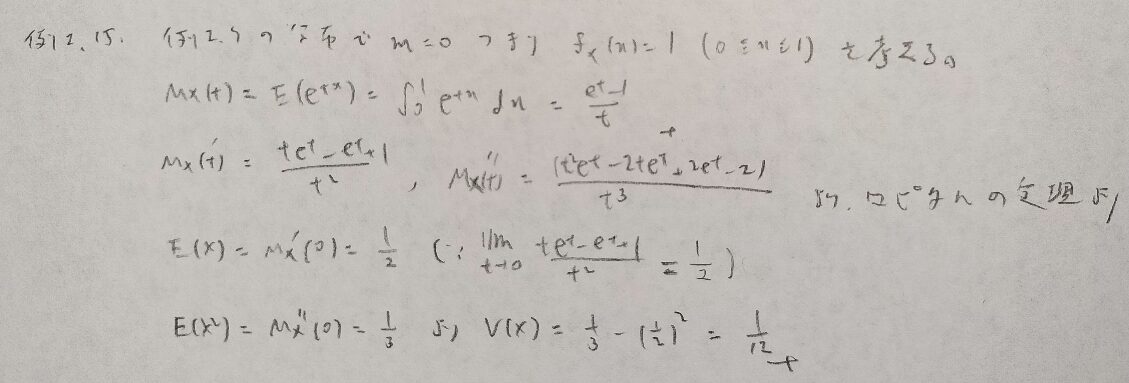 例2.15. 例2.4の分布で m=0 つまり fx(x)=1 (0≦x≦1) を考える。
Mx(t) = E(e^{tx}) = ∫₀¹ e^{tx} dx = (e^t-1)/t
Mx'(t) = (te^t-e^t+1)/t² , Mx''(t) = (t²e^t-2te^t+2e^t-2)/t³ より. ロピタルの定理より
E(X) = Mx'(0) = 1/2 (∵ lim_{t→0} (te^t-e^t+1)/t² = 1/2)
E(X²) = Mx''(0) = 1/3 より V(X) = 1/3 - (1/2)² = 1/12